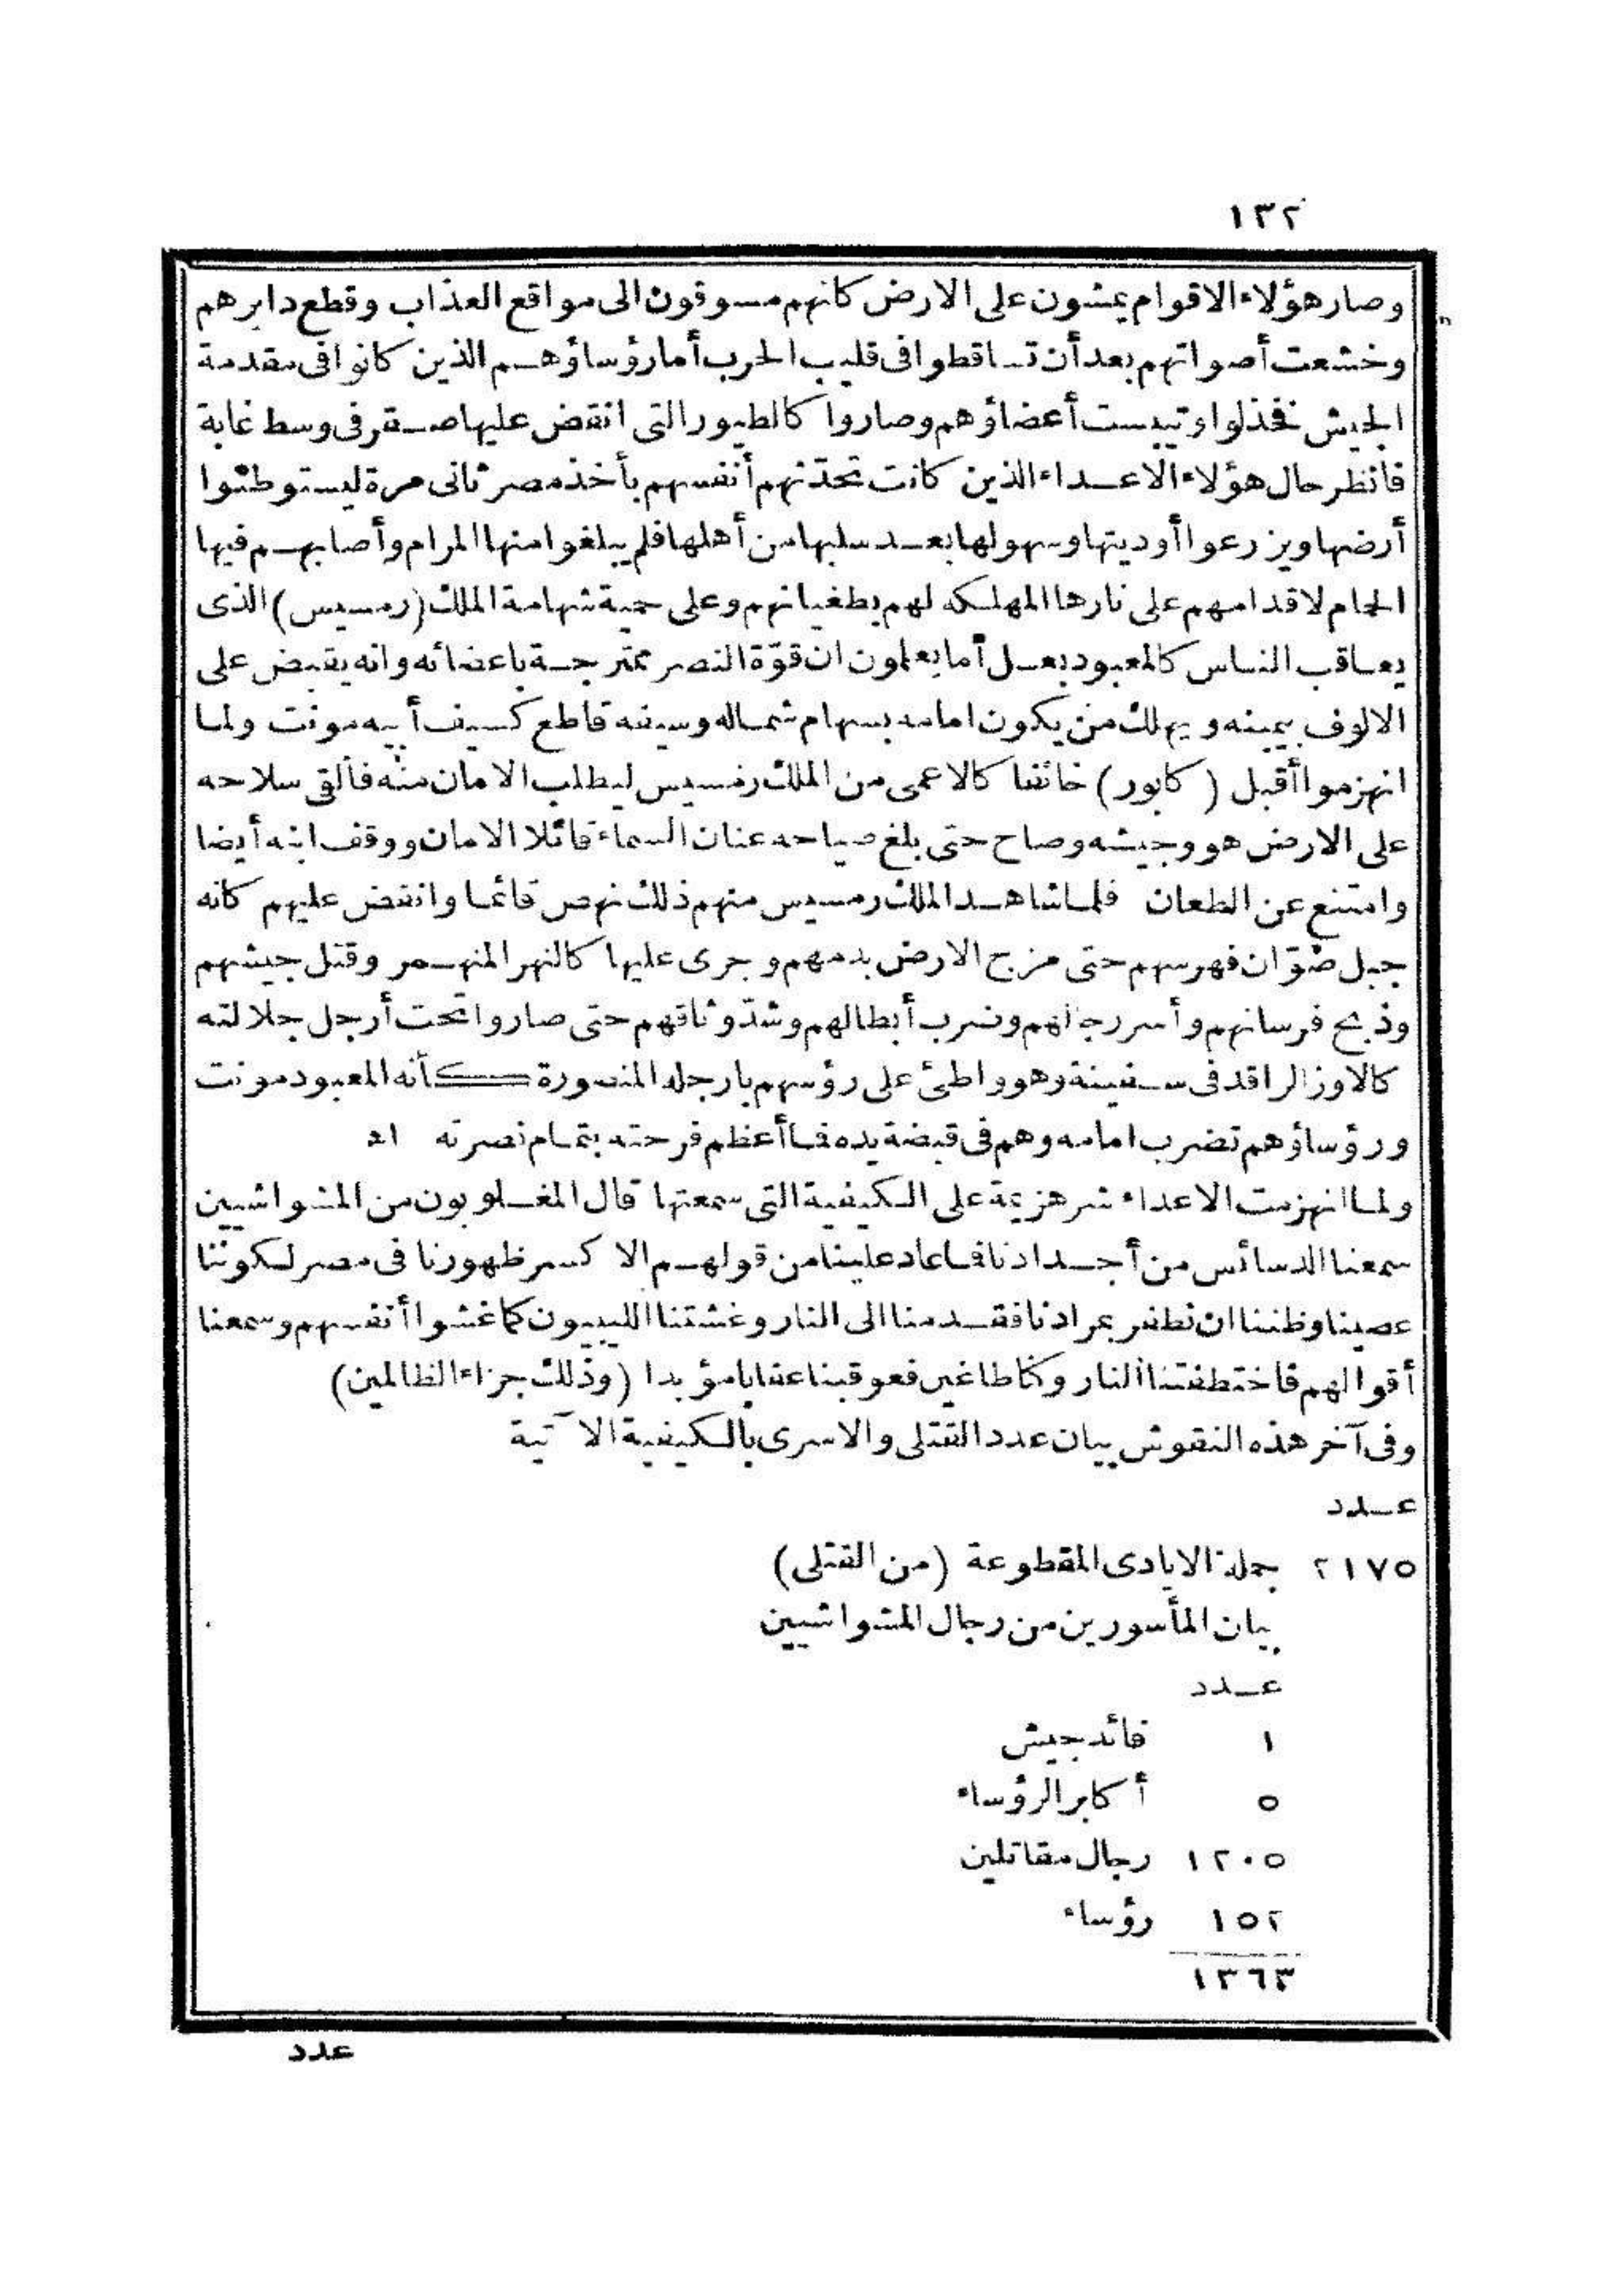 ١٣٢
وصار هؤلاء الاقوام يمشون على الارض كانهم مسوقون الى مواقع العذاب وقطع دابرهم
وخشعت أصواتهم بعد أن تساقطوا فى قليب الحرب أما رؤساؤهم الذين كانوا فى مقدمة
الجيش فخذلوا وتيبست أعضاؤهم وصاروا كالطيور التى انقض عليها صقر فى وسط غابة
فانظر حال هؤلاء الاعداء الذين كانت تحدّثهم أنفسهم بأخذ مصر ثانى مرة ليستوطنوا
أرضها ويزرعوا أوديتها وسهولها بعد سلبها من أهلها فلم يبلغوا منها المرام وأصابهم فيها
الحمام لاقدامهم على نارها المهلكه لهم بطغيانهم وعلى حمية شهامة الملك (رمسيس) الذى
يعاقب الناس كالمعبود بعل أما يعلمون ان قوّة النصر ممتزجة باعضائه وانه يقبض على
الالوف بيمينه ويهلك من يكون امامه بسهام شماله وسيفه قاطع كسيف أبيه مونت ولما
انهزموا أقبل (كابور) خائفا كالاعمى من الملك رمسيس ليطلب الامان منه فألقى سلاحه
على الارض هو وجيشه وصاح حتى بلغ صياحه عنان السماء قائلا الامان ووقف ابنه أيضا
وامتنع عن الطعان فلما شاهد الملك رمسيس منهم ذلك نهض قائما وانقض عليهم كانه
جبل صوّان فهرسهم حتى مزج الارض بدمهم وجرى عليها كالنهر المنهمر وقتل جيشهم
وذبح فرسانهم وأسر رجالهم وضرب أبطالهم وشدّ وثاقهم حتى صاروا تحت أرجل جلالته
كالاوز الراقد فى سفينة وهو واطئ على رؤسهم بارجله المنصورة كأنه المعبود مونت
ورؤساؤهم تضرب امامه وهم فى قبضة يده فما أعظم فرحته بتمام نصرته اه
ولما انهزمت الاعداء شر هزيمة على الكيفية التى سمعتها قال المغلوبون من المشواشيين
سمعنا الدسائس من أجدادنا فما عاد علينا من قولهم الا كسر ظهورنا فى مصر لكوننا
عصينا وظننا ان نظفر بمرادنا فقدمنا الى النار وغشتنا الليبيون كما غشوا أنفسهم وسمعنا
أقوالهم فاختطفتنا النار وكنا طاغين فعوقبنا عقابا مؤبدا (وذلك جزاء الظالمين)
وفى آخر هذه النقوش بيان عدد القتلى والاسرى بالكيفية الآتية
عدد
٢١٧٥ جملة الايادى المقطوعة (من القتلى)
بيان المأسورين من رجال المشواشيين
عدد
١ قائد جيش
٥ أكابر الرؤساء
١٢٠٥ رجال مقاتلين
١٥٢ رؤساء
١٣٦٣
عدد